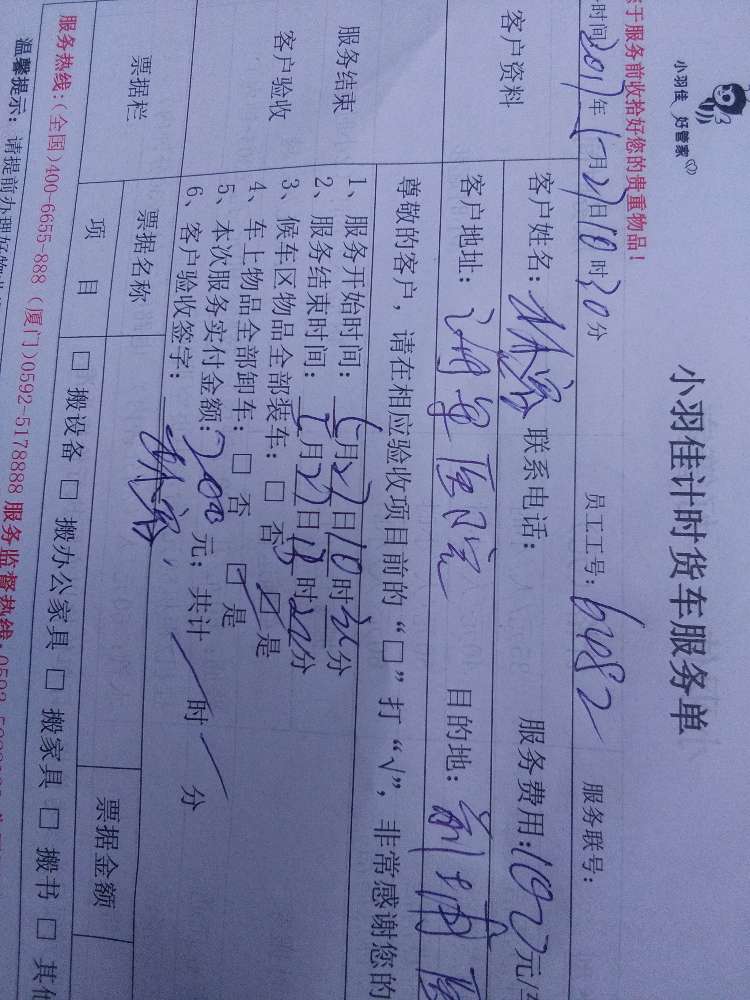 小羽佳 好管家
小羽佳计时货车服务单
于服务前收拾好您的贵重物品！
时间2017年5月27日10时30分 员工工号：6482 服务联号：
客户资料
客户姓名：林 联系电话： 服务费用：100元/
客户地址： 医院 目的地：
尊敬的客户，请在相应验收项目前的“□”打“√”，非常感谢您的
服务结束
客户验收
1、服务开始时间：5月27日10时30分
2、服务结束时间：5月27日12时20分
3、候车区物品全部装车：□ 否 ☑ 是
4、车上物品全部卸车：□ 否 ☑ 是
5、本次服务实付金额：200元；共计 时 分
6、客户验收签字：林
票据栏
票据名称 票据金额
项 目 □ 搬设备 □ 搬办公家具 □ 搬家具 □ 搬书 □ 其他
服务热线：(全国)400-6655-888 (厦门)0592-5178888 服务监督热线：0592-
温馨提示：请提前办理好